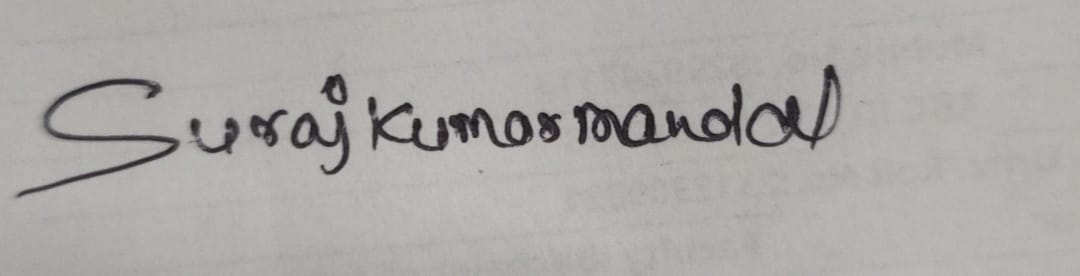 Suraj Kumar mandal